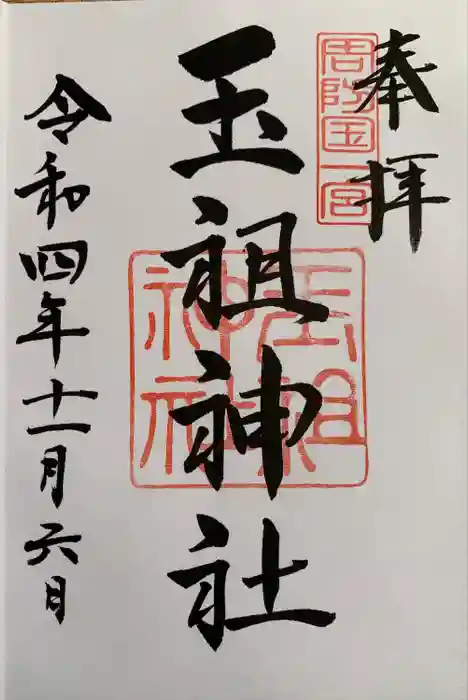 奉拝
周防国一宮
玉祖神社
玉祖神社
令和四年十一月六日